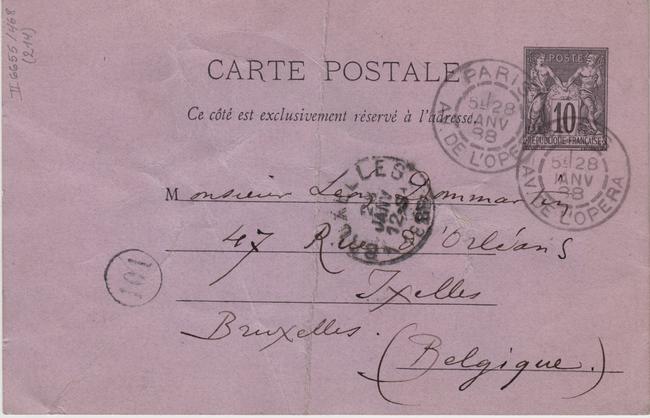 II 6655/468
(214)
CARTE POSTALE
Ce côté est exclusivement réservé à l'adresse.
POSTE
10
REPUBLIQUE FRANÇAISE
PARIS
5E 28
JANV
88
AV. DE L'OPERA
5E 28
JANV
88
AV. DE L'OPERA
BRUXELLES
JANV
12
Monsieur Léon Dommartin
47 Rue d'Orléans
Ixelles
101
Bruxelles.
(Belgique.)